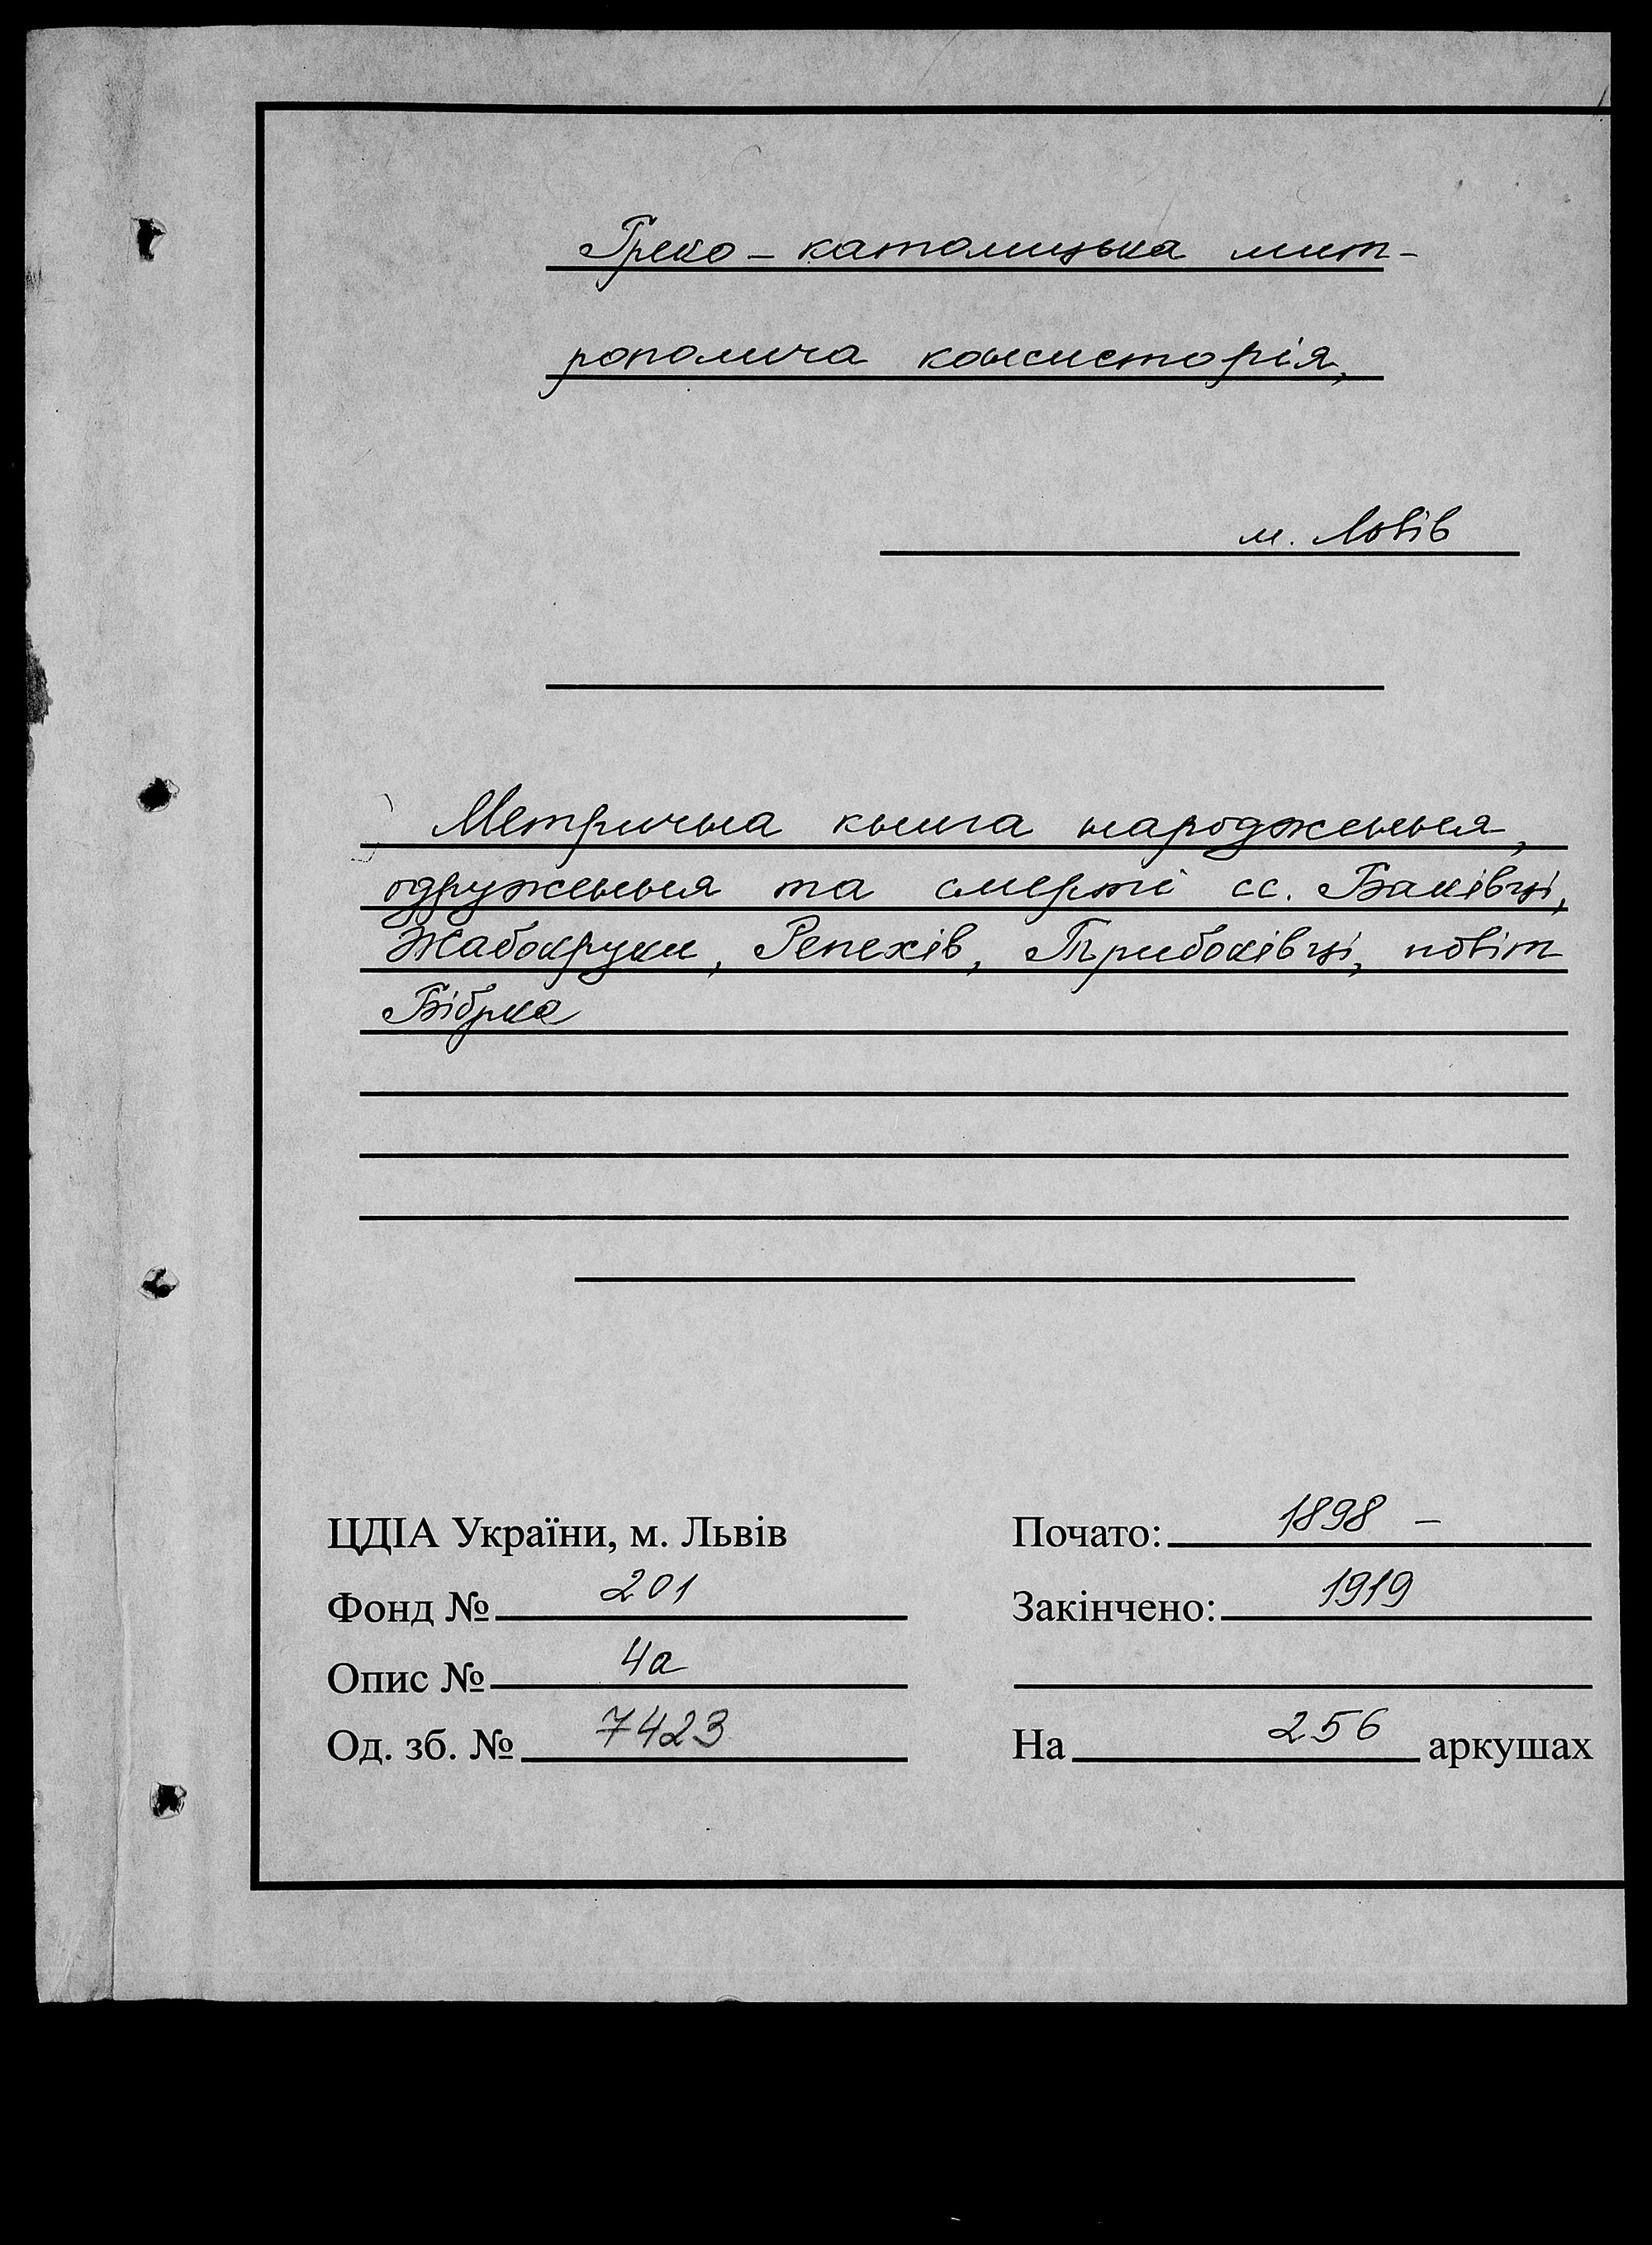 Греко - католицька мит-
рополича консисторія,
м. Львів
Метрична книга народження,
одруження та смерті сс. Баківці,
Жабокруки, Репехів, Трибоківці, повіт
Бібрка
ЦДІА України, м. Львів
Почато: 1898 -
Фонд № 201
Закінчено: 1919
Опис № 4а
Од. зб. № 7423
На 256 аркушах